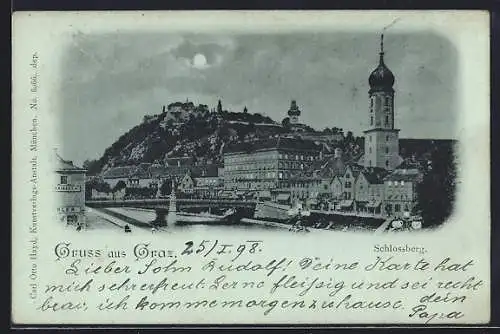 Carl Otto Hayd, Kunstverlags-Anstalt, München. No. 8066. dep.
Gruss aus Graz, 25/I 98.
Schlossberg.
Lieber Sohn Rudolf! Deine Karte hat
mich sehr erfreut. Lerne fleissig und sei recht
brav, ich komme morgen zuhause. dein
Papa